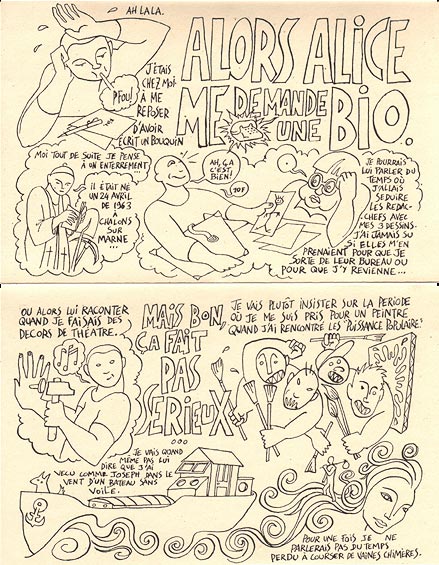 AH LALA.
J'ÉTAIS
CHEZ MOI
À ME
REPOSER
D'AVOIR
ÉCRIT UN BOUQUIN
PFOU!
ALORS ALICE
ME DEMANDE
UNE BIO.
MOI TOUT DE SUITE JE PENSE
À UN ENTERREMENT...
IL ÉTAIT NÉ
UN 24 AVRIL
DE 1963
À
CHALONS
SUR
MARNE...
AH, ÇA
C'EST
BIEN!
JE POURRAIS
LUI PARLER DU
TEMPS OÙ
J'ALLAIS
SÉDUIRE
LES REDAC-
CHEFS AVEC
MES 3 DESSINS.
J'AI JAMAIS SU
SI ELLES M'EN
PRENAIENT POUR QUE JE
SORTE DE LEUR BUREAU OU
POUR QUE J'Y REVIENNE...
OU ALORS LUI RACONTER
QUAND JE FAISAIS DES
DECORS DE THÉATRE...
MAIS BON,
ÇA FAIT
PAS
SERIEUX
...
JE VAIS PLUTOT INSISTER SUR LA PERIODE
OÙ JE ME SUIS PRIS POUR UN PEINTRE
QUAND J'AI RENCONTRÉ LES "PUISSANCE POPULAIRE".
JE VAIS QUAND
MÊME PAS LUI
DIRE QUE J'AI
VECU COMME JOSEPH DANS LE
VENT D'UN BATEAU SANS
VOILE.
POUR UNE FOIS JE NE
PARLERAIS PAS DU TEMPS
PERDU À COURSER DE VAINES CHIMÈRES.